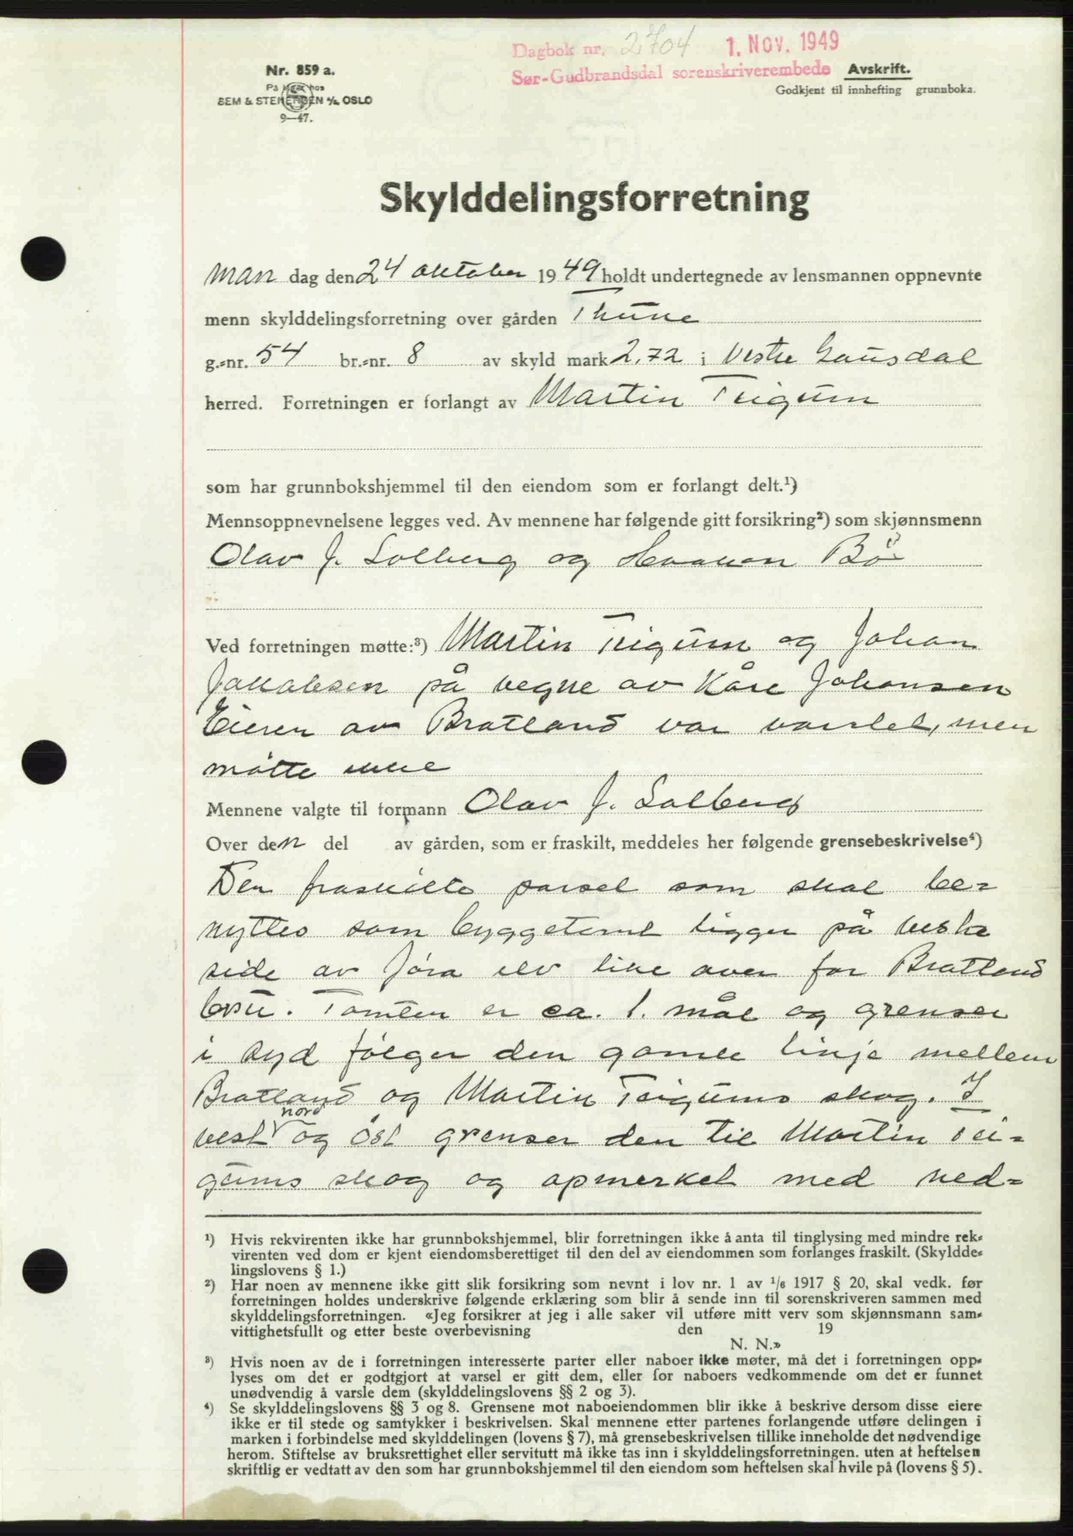 Dagbok nr. 2704 1. NOV. 1949
Sør-Gudbrandsdal sorenskriverembede Avskrift.
Godkjent til innhefting grunnboka.
Nr. 859 a.
På lager hos
SEM & STENERSEN A/S, OSLO
9—47.
Skylddelingsforretning
man dag den 24 oktober 1949 holdt undertegnede av lensmannen oppnevnte
menn skylddelingsforretning over gården Thune
g.-nr. 54 br.-nr. 8 av skyld mark 2,72 i Vestre Gausdal
herred. Forretningen er forlangt av Martin Teigum
som har grunnbokshjemmel til den eiendom som er forlangt delt.¹)
Mennsoppnevnelsene legges ved. Av mennene har følgende gitt forsikring²) som skjønnsmenn
Olav J. Solberg og Haakon Bö
Ved forretningen møtte:³) Martin Teigum og Johan
Jakobsen på vegne av Kåre Johansen
Eieren av Bratland var varslet, men
møtte ikke
Mennene valgte til formann Olav J. Solberg
Over den del av gården, som er fraskilt, meddeles her følgende grensebeskrivelse⁴)
Den fraskilte parsel som skal be=
nyttes som byggetomt ligger på vestre
side av Jöra elv like over for Bratland
bru. Tomten er ca. 1. mål og grenser
i syd følger den gamle linje mellem
Bratland og Martin Teigums skog. I
vest nord og öst grenser den til Martin Tei=
gums skog og opmerket med ned=
¹) Hvis rekvirenten ikke har grunnbokshjemmel, blir forretningen ikke å anta til tinglysing med mindre rek-
virenten ved dom er kjent eiendomsberettiget til den del av eiendommen som forlanges fraskilt. (Skyldde-
lingslovens § 1.)
²) Har noen av mennene ikke gitt slik forsikring som nevnt i lov nr. 1 av 1/6 1917 § 20, skal vedk. før
forretningen holdes underskrive følgende erklæring som blir å sende inn til sorenskriveren sammen med
skylddelingsforretningen. «Jeg forsikrer at jeg i alle saker vil utføre mitt verv som skjønnsmann sam-
vittighetsfullt og etter beste overbevisning den 19
N. N.»
³) Hvis noen av de i forretningen interesserte parter eller naboer ikke møter, må det i forretningen opp-
lyses om det er godtgjort at varsel er gitt dem, eller for naboers vedkommende om det er funnet
unødvendig å varsle dem (skylddelingslovens §§ 2 og 3).
⁴) Se skylddelingslovens §§ 3 og 8. Grensene mot naboeiendommen blir ikke å beskrive dersom disse eiere
ikke er til stede og samtykker i beskrivelsen. Skal mennene etter partenes forlangende utføre delingen i
marken i forbindelse med skylddelingen (lovens § 7), må grensebeskrivelsen tillike inneholde det nødvendige
herom. Stiftelse av bruksrettighet eller servitutt må ikke tas inn i skylddelingsforretningen, uten at heftelsen
skriftlig er vedtatt av den som har grunnbokshjemmel til den eiendom som heftelsen skal hvile på (lovens § 5).